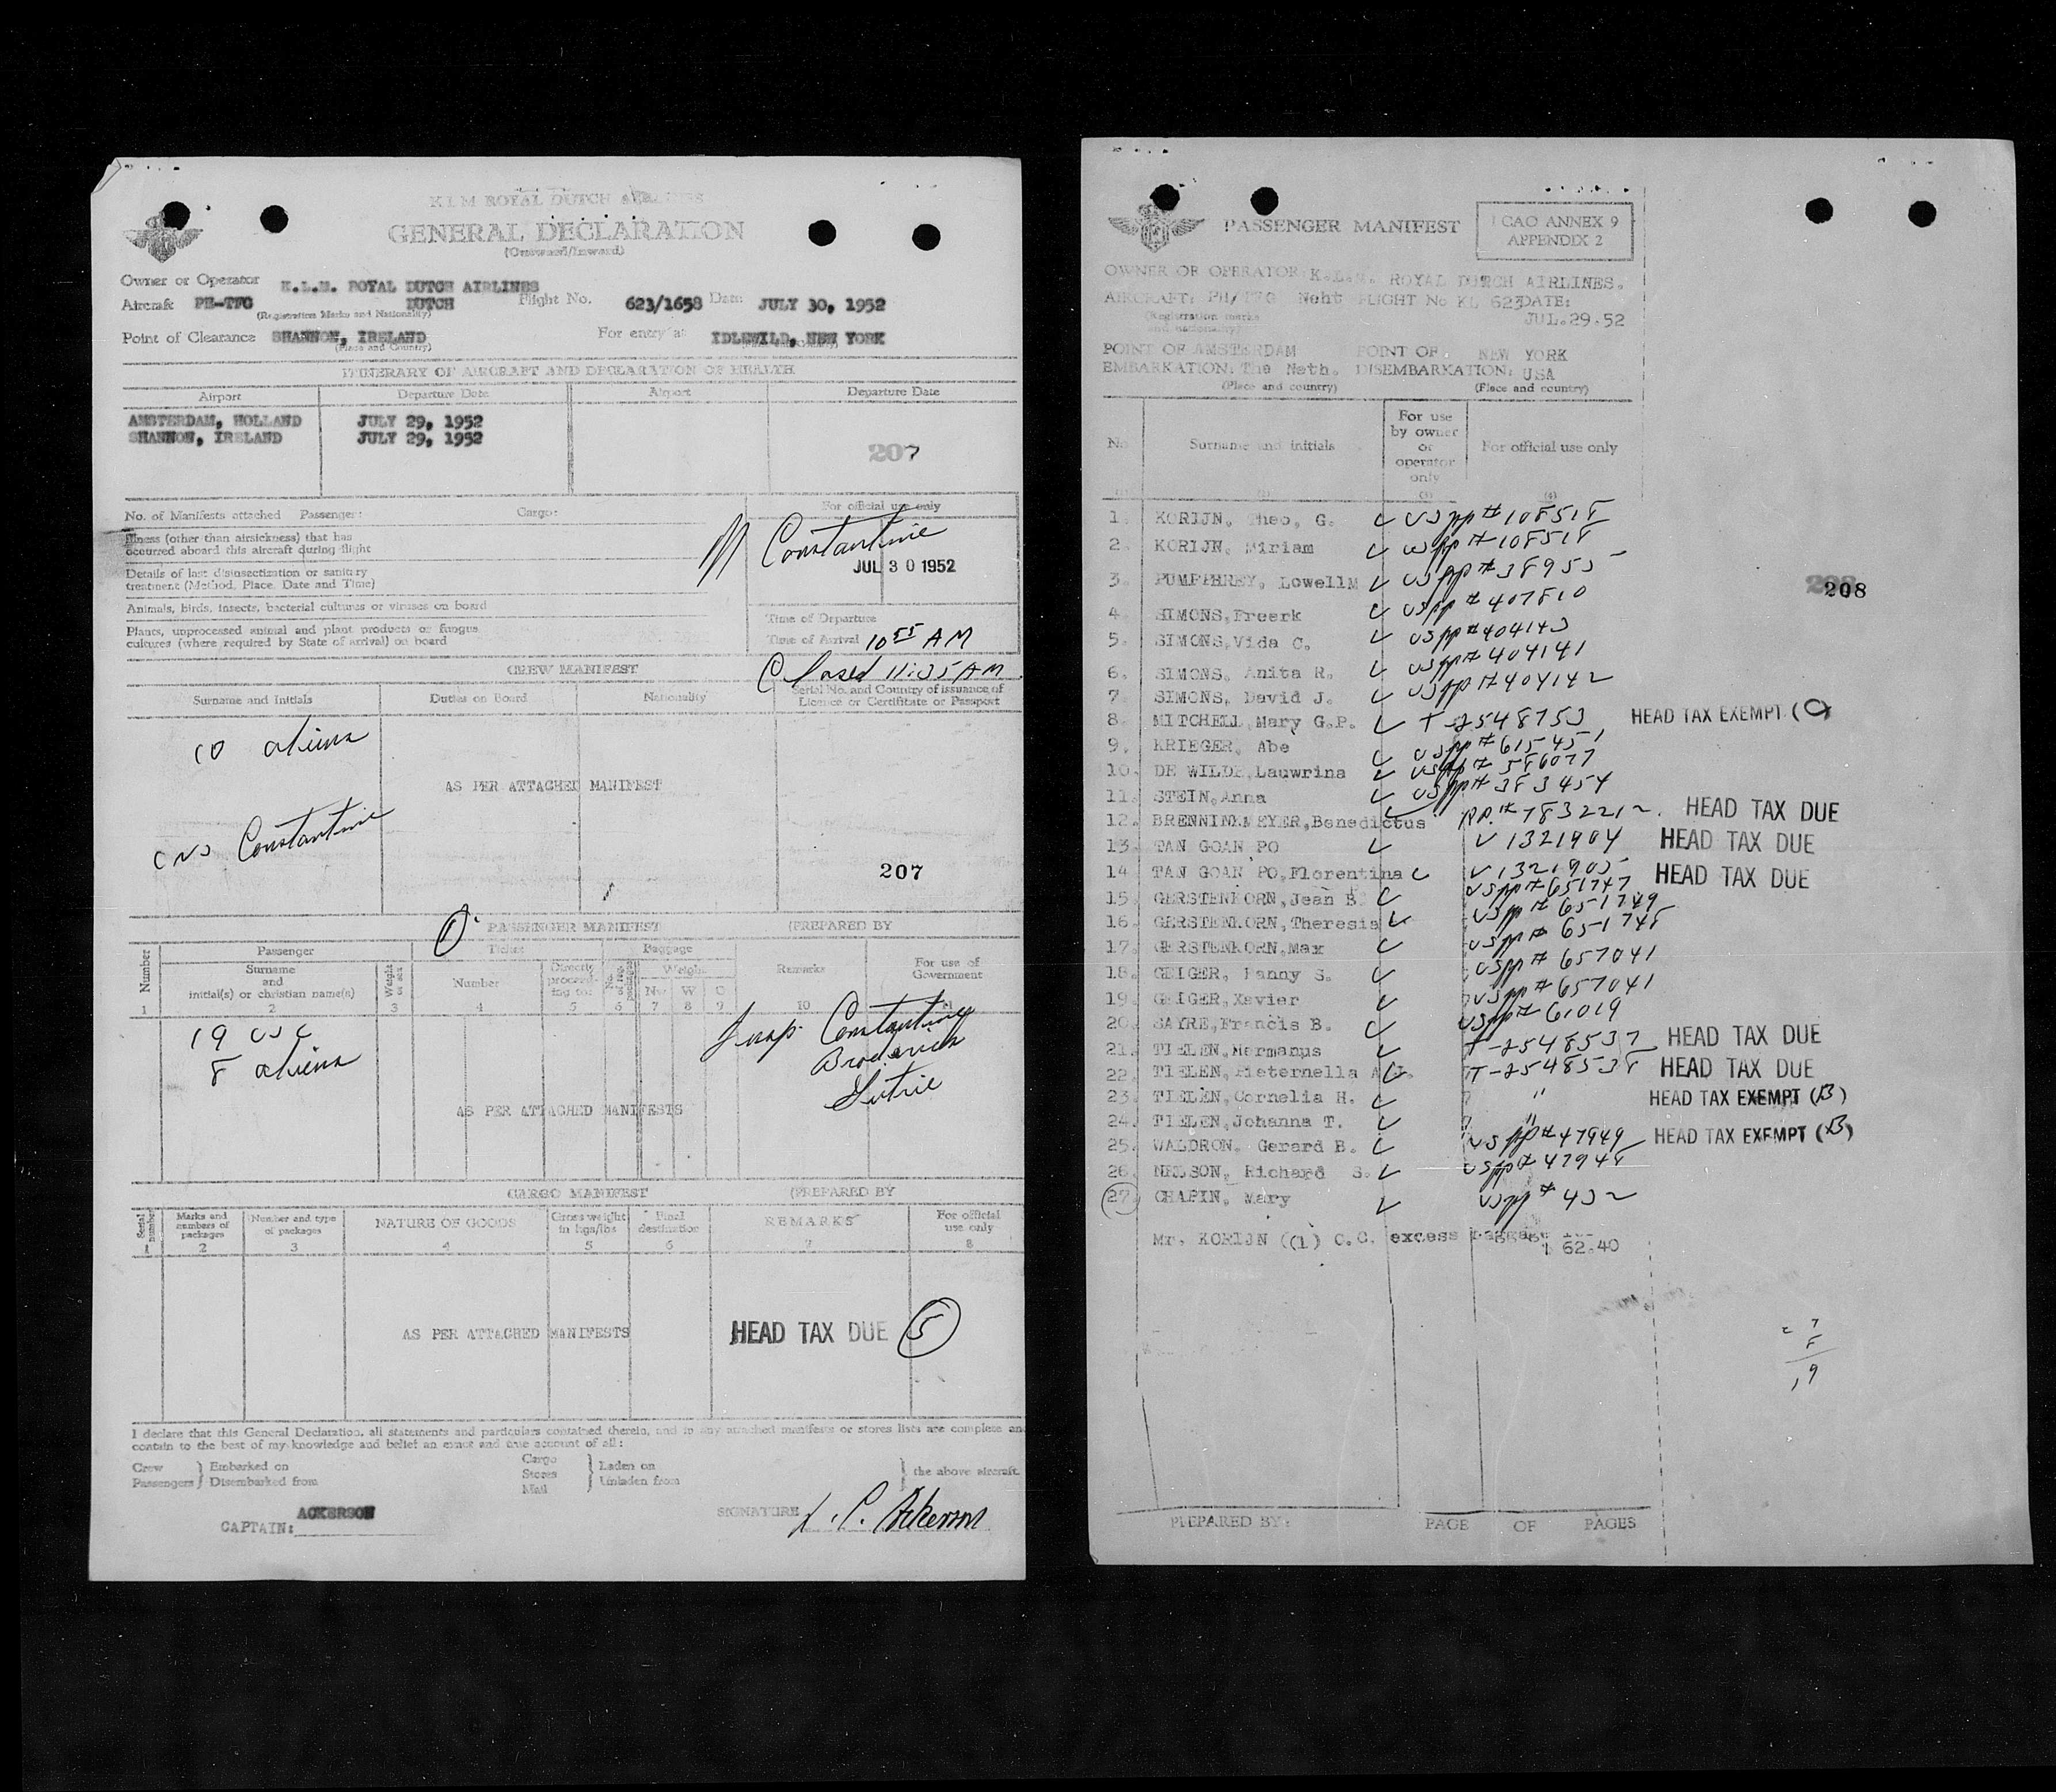 KLM ROYAL DUTCH AIRLINES
GENERAL DECLARATION
(Outward/Inward)
Owner or Operator K.L.M. ROYAL DUTCH AIRLINES
Aircraft PH-TFG DUTCH Flight No. 623/1658 Date JULY 30, 1952
(Registration Marks and Nationality)
Point of Clearance SHANNON, IRELAND For entry at IDLEWILD, NEW YORK
(Place and Country)
ITINERARY OF AIRCRAFT AND DECLARATION OF HEALTH
Airport Departure Date Airport Departure Date
AMSTERDAM, HOLLAND JULY 29, 1952
SHANNON, IRELAND JULY 29, 1952
207
No. of Manifests attached Passenger: Cargo: For official use only
Illness (other than airsickness) that has
occurred aboard this aircraft during flight
Constantine
JUL 30 1952
Details of last disinsectization or sanitary
treatment (Method, Place, Date and Time)
Animals, birds, insects, bacterial cultures or viruses on board
Plants, unprocessed animal and plant products or fungus
cultures (where required by State of arrival) on board
Time of Departure
Time of Arrival 10 55 AM
Closed 11:35 AM
CREW MANIFEST
Surname and Initials Duties on Board Nationality Serial No. and Country of issuance of
Licence or Certificate or Passport
10 aliens
AS PER ATTACHED MANIFEST
CNS Constantine
207
PASSENGER MANIFEST (PREPARED BY
Number Passenger Ticket Baggage Remarks For use of
Government
Surname
and
initial(s) or christian name(s)
Number Directly
proceed-
ing to: Weight
1 2 3 4 5 6 7 8 9 10 11
19 USC
8 aliens
Insp. Constantine
Broderick
AS PER ATTACHED MANIFESTS
CARGO MANIFEST (PREPARED BY
Serial number Marks and
numbers of
packages Number and type
of packages NATURE OF GOODS Gross weight
in kgs/lbs Final
destination REMARKS For official
use only
1 2 3 4 5 6 7 8
AS PER ATTACHED MANIFESTS HEAD TAX DUE 5
I declare that this General Declaration, all statements and particulars contained therein, and in any attached manifests or stores lists are complete and
contain to the best of my knowledge and belief an exact and true account of all:
Crew
Passengers
Embarked on
Disembarked from
Cargo
Stores
Mail
Laden on
Unladen from
the above aircraft.
ACKERSON
CAPTAIN:
SIGNATURE Ackerson
PASSENGER MANIFEST
ICAO ANNEX 9
APPENDIX 2
OWNER OR OPERATOR: K.L.M. ROYAL DUTCH AIRLINES.
AIRCRAFT: PH/TFG Neht FLIGHT No KL 623 DATE:
JUL.29.52
(Registration marks
and nationality)
POINT OF AMSTERDAM POINT OF NEW YORK
EMBARKATION: The Neth. DISEMBARKATION: USA
(Place and country) (Place and country)
No Surname and initials For use
by owner
or
operator
only For official use only
(3) (4)
1. KORIJN, Theo, G. US pp # 108518
2. KORIJN, Miriam US pp # 108518
3. PUMPHREY, Lowell M US pp # 38955
4. SIMONS, Freerk US pp # 407810
5. SIMONS, Vida C. US pp # 404143
6. SIMONS, Anita R. US pp # 404141
7. SIMONS, David J. US pp # 404142
8. MITCHELL, Mary G.P. T-2548753 HEAD TAX EXEMPT (C)
9. KRIEGER, Abe US pp # 615451
10. DE WILDE, Lauwrina US pp # 586077
11. STEIN, Anna US pp # 383454
12. BRENNINKMEYER, Benedictus R.P. # 7832212. HEAD TAX DUE
13. TAN GOAN PO V 1321904 HEAD TAX DUE
14. TAN GOAN PO, Florentina V 1321905 HEAD TAX DUE
15. GERSTENKORN, Jean B. US pp # 651747
16. GERSTENKORN, Theresia US pp # 651749
17. GERSTENKORN, Max US pp # 651748
18. GEIGER, Fanny S. US pp # 657041
19. GEIGER, Xavier US pp # 657041
20. SAYRE, Francis B. US pp # 61019
21. TIELEN, Hermanus T-2548537 HEAD TAX DUE
22. TIELEN, Pieternella T-2548538 HEAD TAX DUE
23. TIELEN, Cornelia H. " HEAD TAX EXEMPT (B)
24. TIELEN, Johanna T. "
25. WALDRON, Gerard B. US pp # 47949 HEAD TAX EXEMPT (B)
26. NELSON, Richard S. US pp # 47948
27. CHAPIN, Mary US pp # 432
Mr. KORIJN ((1) C.C. excess baggage 62.40
208
27
8
19
PREPARED BY: PAGE OF PAGES